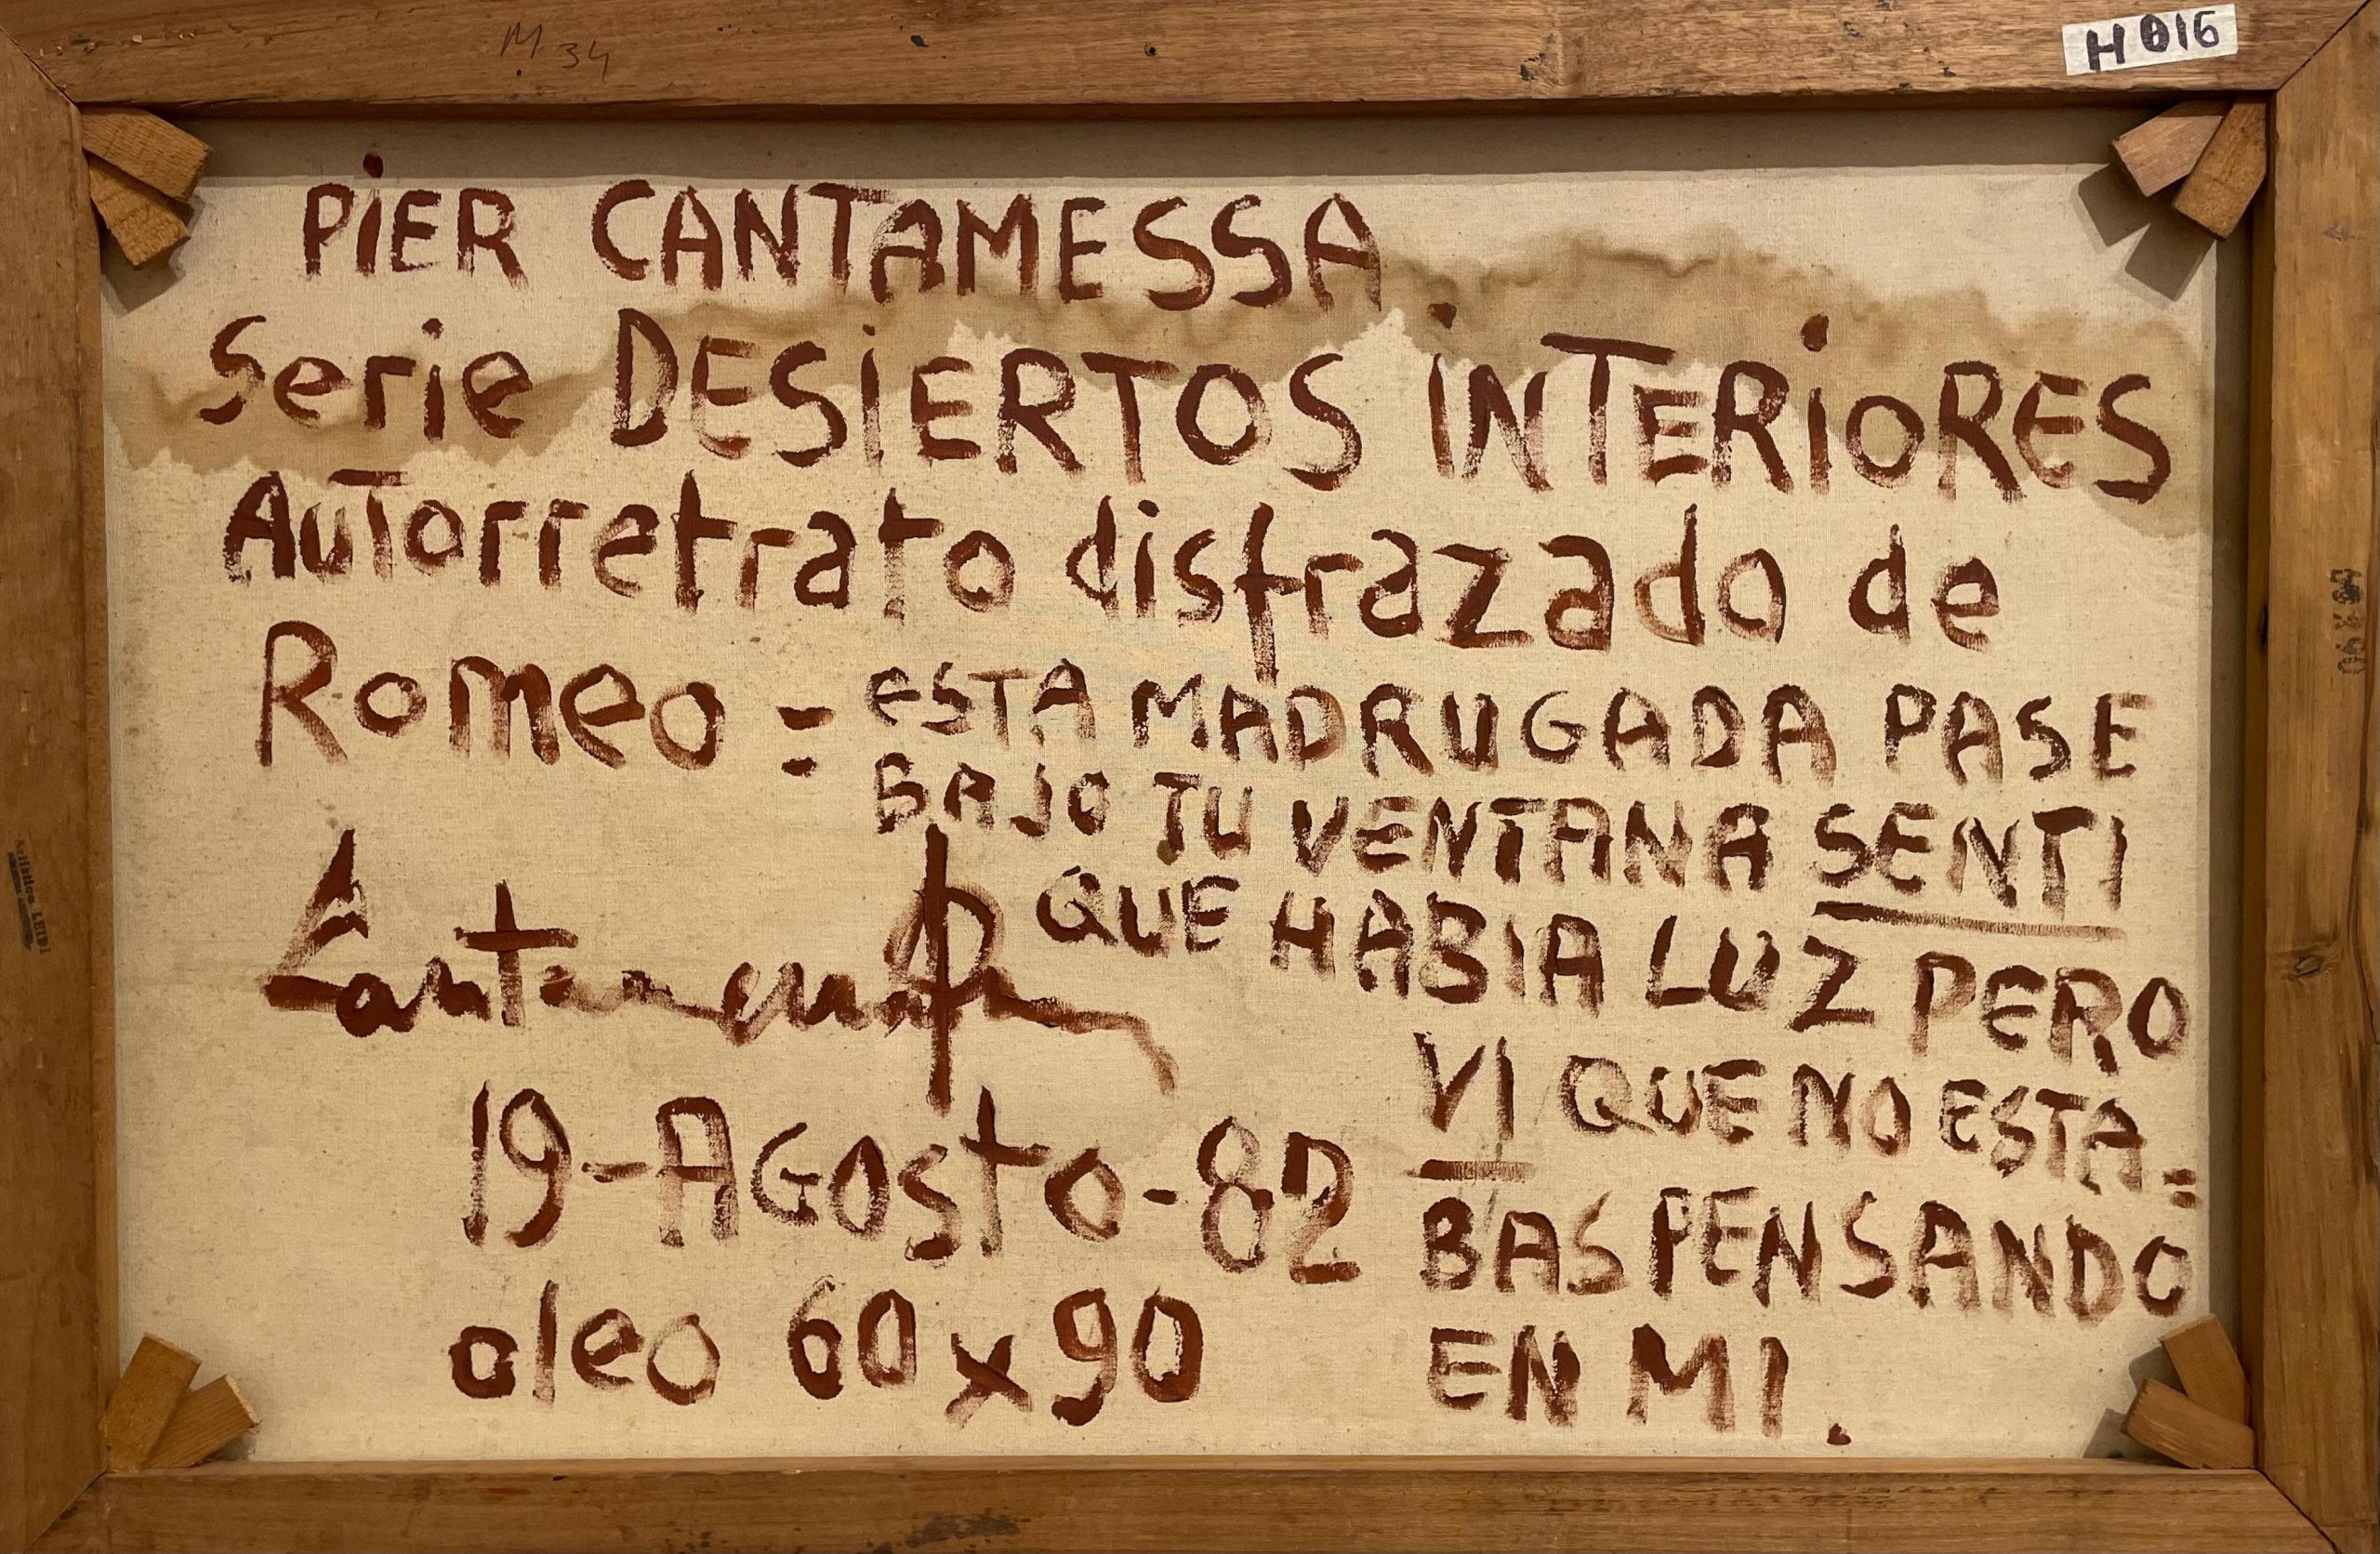 M 34
H 016
PiER CANTAMESSA.
Serie DESiERTOS iNTERiORES
Autorretrato disfrazado de
Romeo = ESTA MADRUGADA PASE
BAJO TU VENTANA SENTI
QUE HABIA LUZ PERO
VI QUE NO ESTA=
BAS PENSANDO
EN MI.
Cantamessa
19-AGOSto-82
oleo 60x90
LEIDI